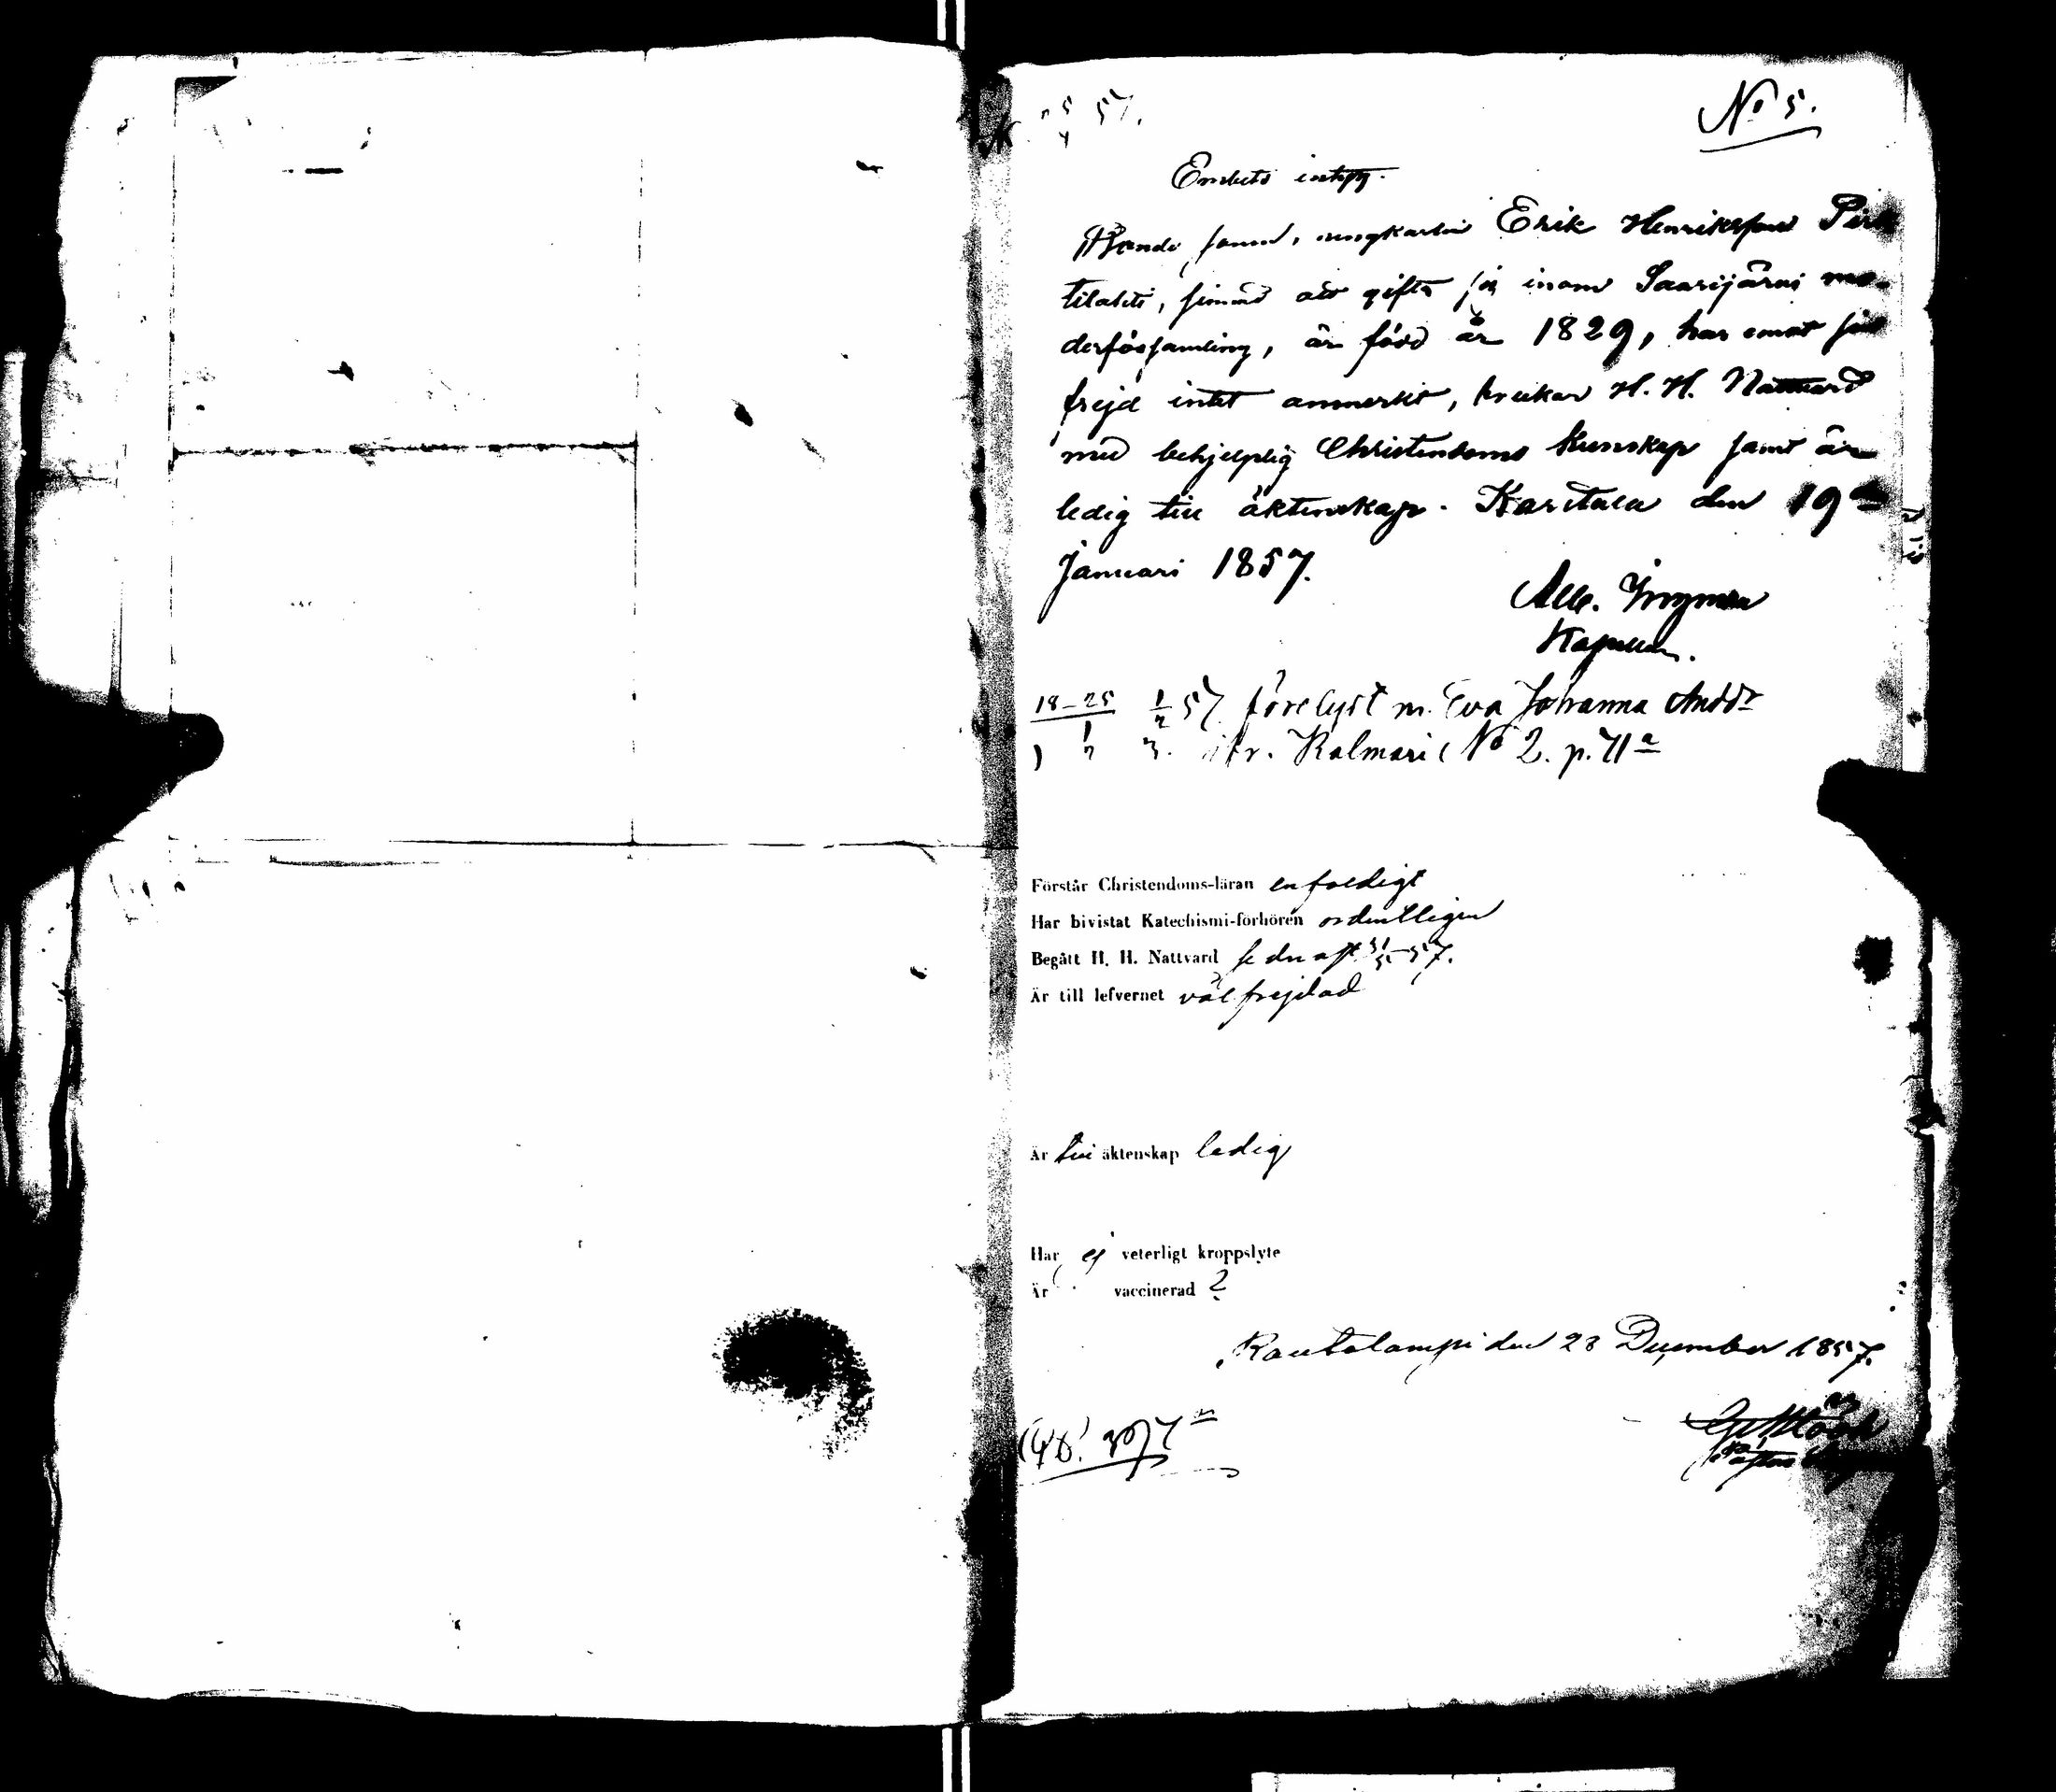 No 5.
57.
Embets intyg.
Bonde sonen, ungkarlen Erik Henriksson Pirt
tilahti, sinnad att gifta sig inom Saarijärvi mo-
derförsamling, är född år 1829, har emot sin
frejd intet anmerkt, brukar H. H. Nattvard
med behjelplig Christendoms kunskap samt är
ledig till äktenskap. Karstula den 19de
Januari 1857.
Alb. Ingman
Kapellan.
18–25 1/2 57 förelyst m. Eva Johanna Anddr
Kalmari No 2. p. 71a
Förstår Christendoms-läran enfaldigt
Har bivistat Katechismi-förhören ordentligen
Begått H. H. Nattvard sednast 31/5 57.
Är till lefvernet välfrejdad
Är till äktenskap ledig
Har ej veterligt kroppslyte
Är vaccinerad ?
Rautalampi den 28 December 1857.